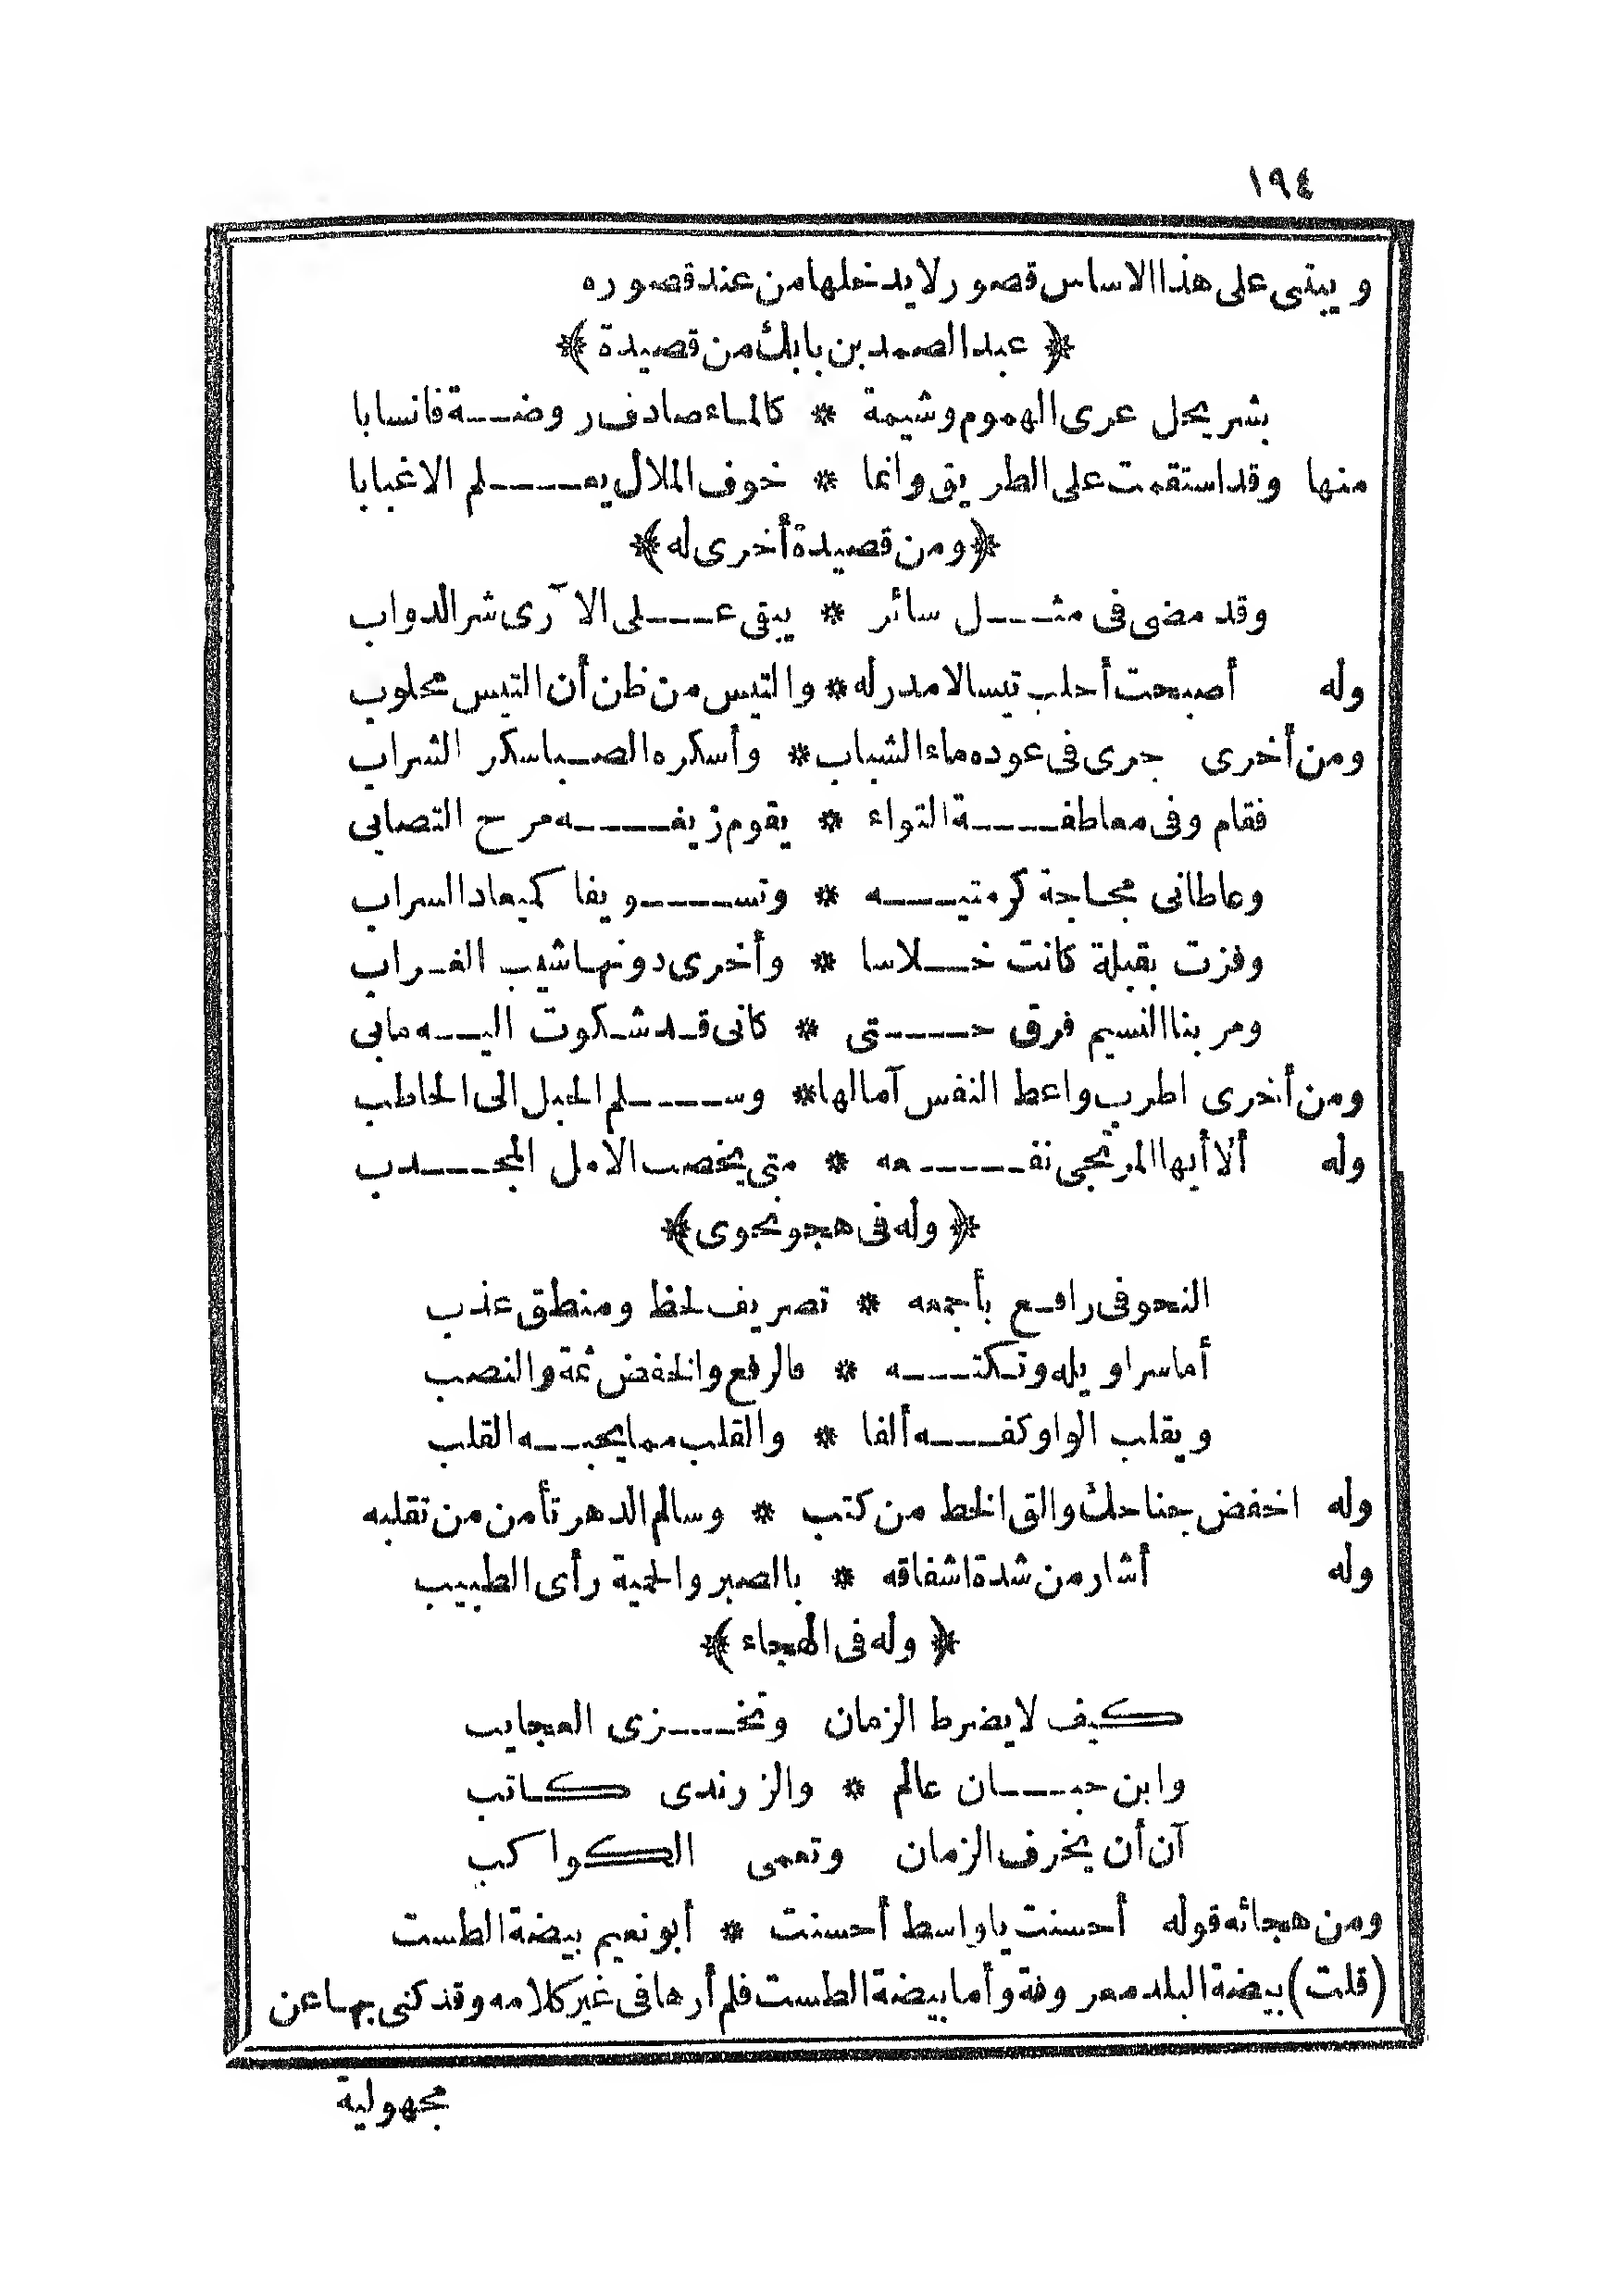 ١٩٤
ويبتنى على هذا الاساس قصور لا يدخلها من عند قصوره
﴿ عبد الصمد بن بابك من قصيدة ﴾
بشر يحل عرى الهموم وشيمة * كالماء صادف روضة فانسابا
منها وقد استقمت على الطريق وانما * خوف الملال يعلم الاغبابا
﴿ ومن قصيدة أخرى له ﴾
وقد مضى فى مثل سائر * يبقى على الآرى شر الدواب
وله أصبحت أحلب تيسا لا مدر له * والتيس من ظن أن التيس محلوب
ومن أخرى جرى فى عوده ماء الشباب * وأسكره الصبا سكر الشراب
فقام وفى معاطفة التواء * يقوم زيغه مرح التصابى
وعاطانى مجاجة كرمتيه * وتسويفا كميعاد السراب
وفزت بقبلة كانت خلاسا * وأخرى دونها شيب الغراب
ومر بنا النسيم فرق حتى * كانى قد شكوت اليه مابى
ومن أخرى اطرب واعط النفس آمالها * وسلم الحبل الى الحاطب
وله ألا أيها المرتجى نفعه * متى يخصب الامل المجدب
﴿ وله فى هجو نحوى ﴾
النحو فى رافع بأجمعه * تصريف لحظ ومنطق عذب
أما سراويله وتكته * فالرفع والخفض ثمة والنصب
ويقلب الواو كفه ألفا * والقلب مما يحبه القلب
وله اخفض جناحك والق الخط من كتب * وسالم الدهر تأمن من تقلبه
وله أشار من شدة اشفاقه * بالصبر والحمية رأى الطبيب
﴿ وله فى الهجاء ﴾
كيف لا يضرط الزمان وتخزى العجايب
وابن حبان عالم * والزرندى كاتب
آن أن يخرف الزمان وتعمى الكواكب
ومن هجائه قوله أحسنت يا واسط أحسنت * أبو نعيم بيضة الطست
(قلت) بيضة البلد معروفة وأما بيضة الطست فلم أرها فى غير كلامه وقد كنى بها عن
مجهولية